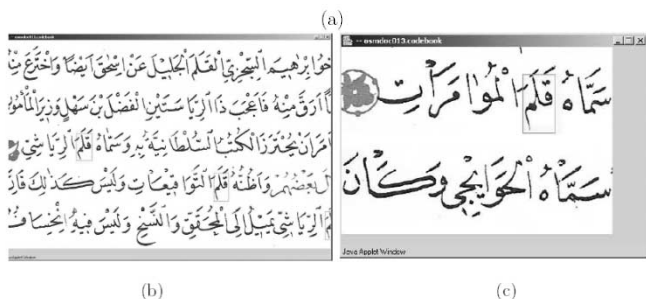 (a)
osmdoc013.codebook
ابرهيم السجزي القلم الجليل عن اسحق ايضا واخترع
ارق منه فاعجب ذا الرياستين الفضل بن سهل وزير
امر ان يحترز الكتب السلطانية به وسماه قلم الرياشي
بعضهم واظنه قلم التواقيعات وليس كذلك فان
الرياشي يميل الى المحقق والنسخ وليس فيه
Java Applet Window
(b)
-- osmdoc013.codebook
سَمَّاهُ قَلَمَ الْمُؤامَرَاتِ
سَمَّاهُ الْحَوايِجِي وَكَانَ
Java Applet Window
(c)